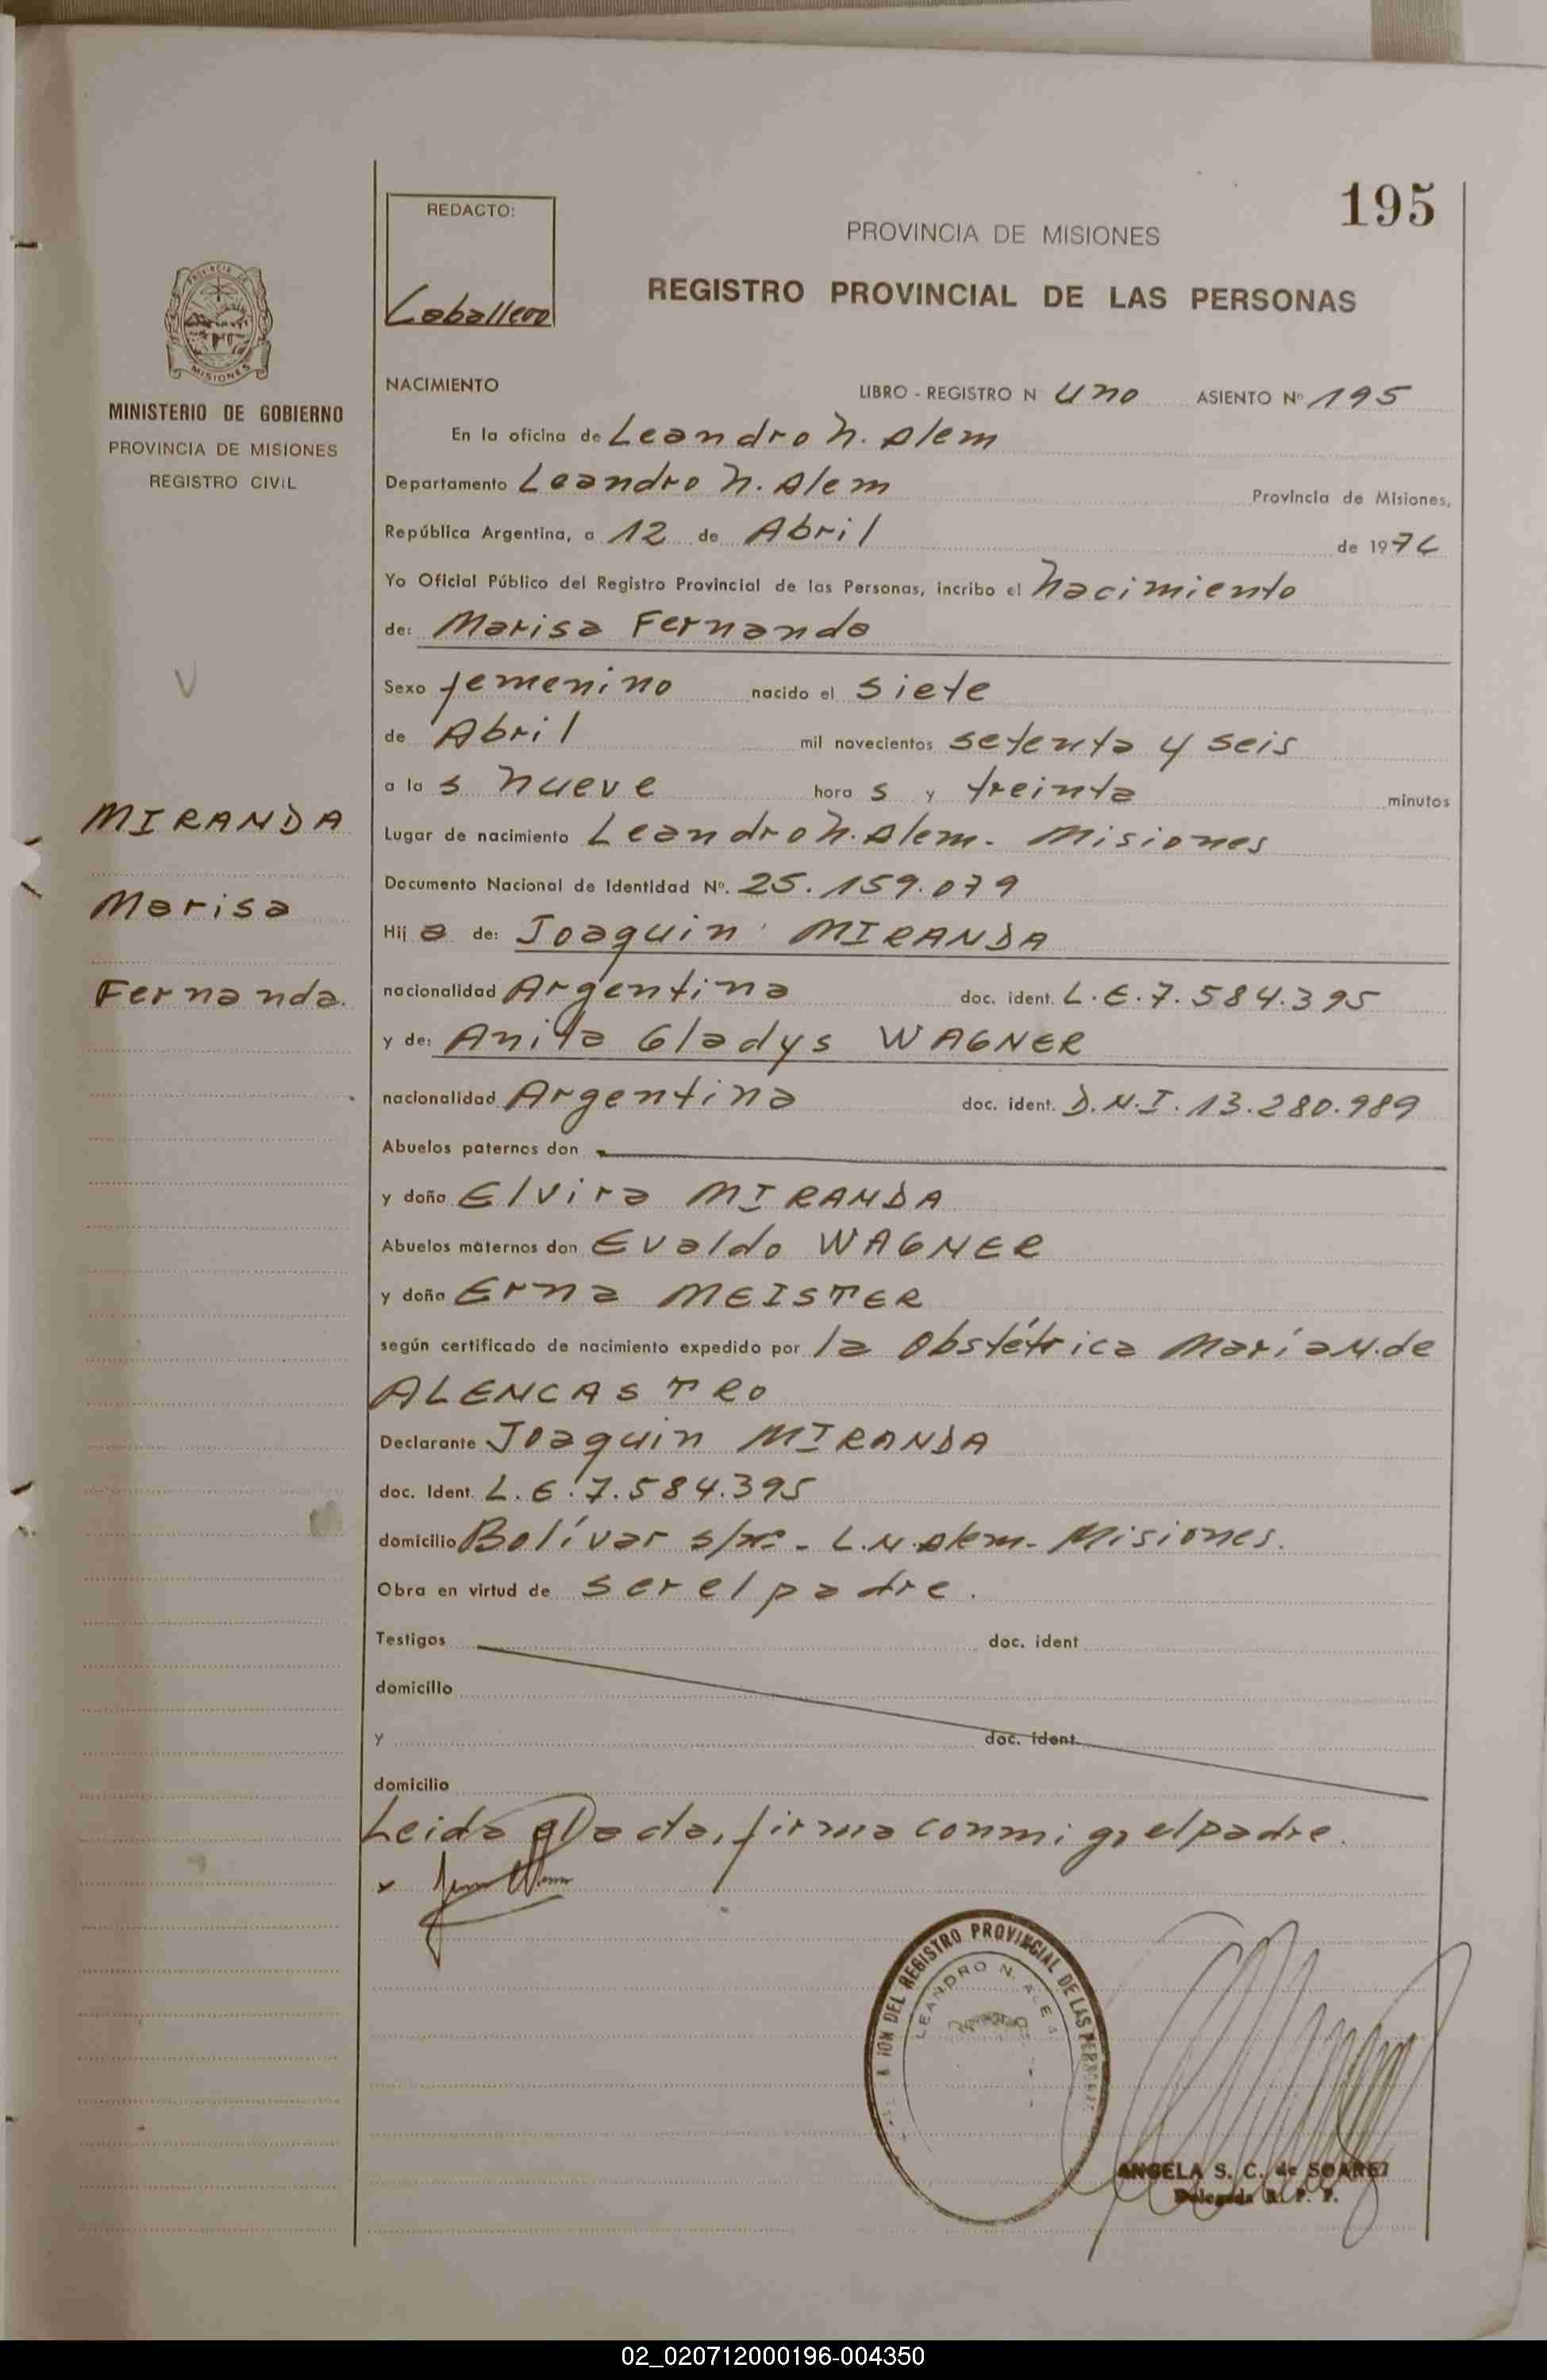 195
REDACTO:
Caballero
PROVINCIA DE MISIONES
REGISTRO PROVINCIAL DE LAS PERSONAS
PROVINCIA DE
MISIONES
MINISTERIO DE GOBIERNO
PROVINCIA DE MISIONES
REGISTRO CIVIL
MIRANDA
Marisa
Fernanda.
NACIMIENTO LIBRO - REGISTRO N uno ASIENTO Nº 195
En la oficina de Leandro N. Alem
Departamento Leandro N. Alem Provincia de Misiones,
República Argentina, a 12 de Abril de 1976
Yo Oficial Público del Registro Provincial de las Personas, incribo el Nacimiento
de: Marisa Fernanda
Sexo femenino nacido el siete
de Abril mil novecientos setenta y seis
a la s nueve hora s y treinta minutos
Lugar de nacimiento Leandro N. Alem - Misiones
Documento Nacional de Identidad Nº. 25.159.079
Hij a de: Joaquin MIRANDA
nacionalidad Argentina doc. ident. L.E.7.584.395
y de: Anita Gladys WAGNER
nacionalidad Argentina doc. ident. D.N.I.13.280.989
Abuelos paternos don
y doña Elvira MIRANDA
Abuelos maternos don Evaldo WAGNER
y doña Erna MEISTER
según certificado de nacimiento expedido por la Obstétrica María N. de
ALENCASTRO
Declarante Joaquin MIRANDA
doc. Ident. L.E.7.584.395
domicilio Bolívar s/nº - L.N.Alem - Misiones.
Obra en virtud de ser el padre.
Testigos doc. ident
domicilio
y doc. ident
domicilio
Leida el acta, firma conmigo el padre.
x
ION DEL REGISTRO PROVINCIAL DE LAS PERSONAS
LEANDRO N. ALE
ANGELA S. C. de SOAREZ
Delegada R. P. P.
02_020712000196-004350